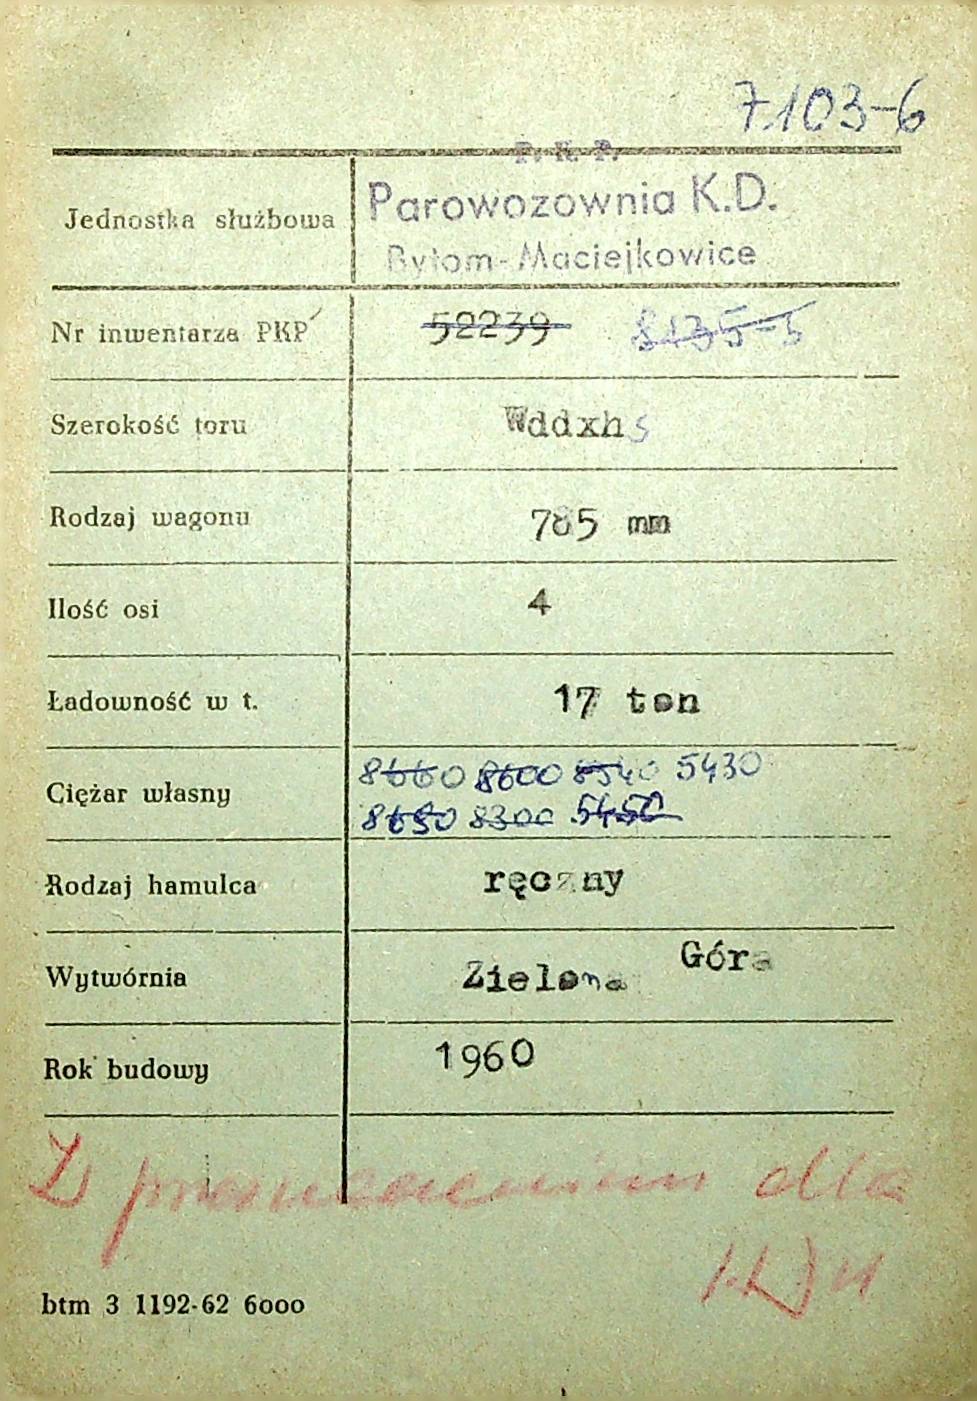 7103-6
P. K. P.
Jednostka służbowa Parowozownia K.D.
Bytom-Maciejkowice
Nr inwentarza PKP 52239 8135-5
Szerokość toru Wddxhs
Rodzaj wagonu 785 mm
Ilość osi 4
Ładowność w t. 17 ton
Ciężar własny 8660 8600 8540 5430
8650 8300 5450
Rodzaj hamulca ręczny
Wytwórnia Zielona Góra
Rok budowy 1960
Z dla
btm 3 1192-62 6000